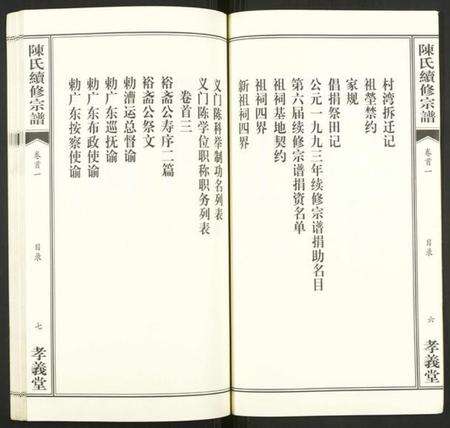 陳氏續修宗譜
卷首一
目录
六
孝義堂
村湾拆迁记
祖茔禁约
家规
倡捐祭田记
公元一九九三年续修宗谱捐助名目
第六届续修宗谱捐资名单
祖祠基地契约
祖祠四界
新祖祠四界
义门陈科举制功名列表
义门陈学位职称职务列表
卷首三
裕斋公寿序二篇
裕斋公祭文
勅漕运总督谕
勅广东巡抚谕
勅广东布政使谕
勅广东按察使谕
陳氏續修宗譜
卷首一
目录
七
孝義堂